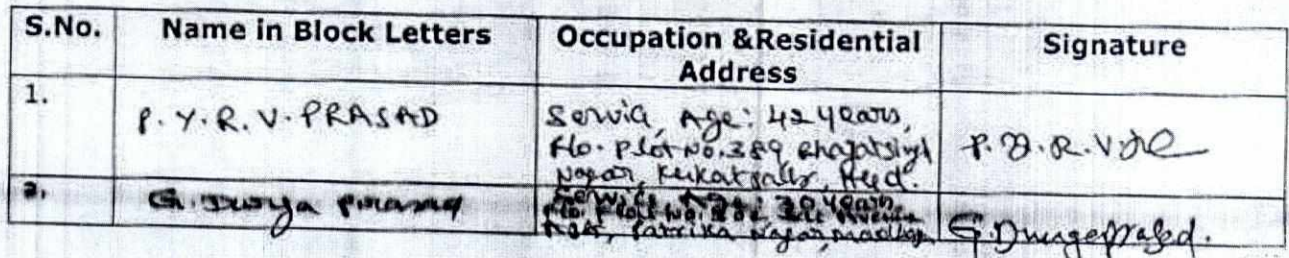 S.No. Name in Block Letters Occupation &Residential Address Signature
1. P. Y. R. V. PRASAD Service, Age: 42 years,
Plot No. 389, Bhagatsingh
Nagar, Kukatpally, Hyd.
P. Y. R. V.
2. G. Durga Prasad Service Age: 30 years,
Nagar,
G. Durgaprasad.